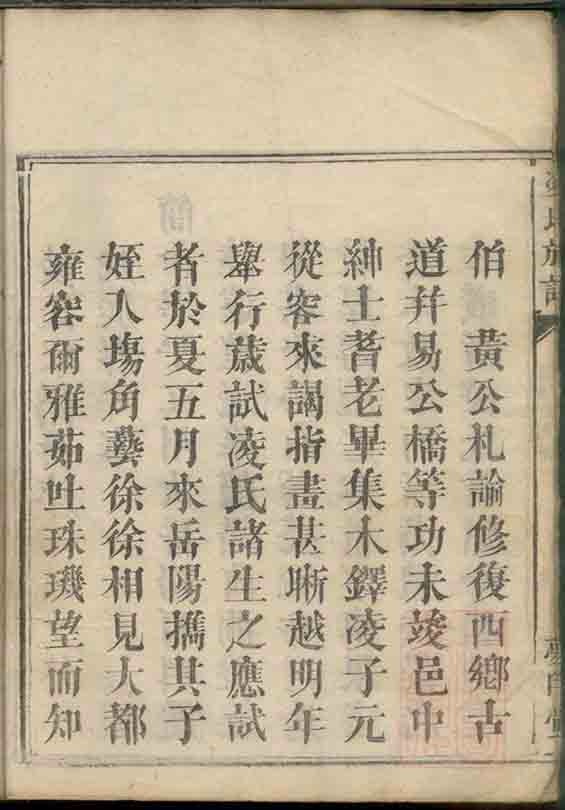 伯　黃公札諭修復西鄉古
道幷易公橋等功未竣邑中
紳士耆老畢集木鐸凌子元
從容來謁指畫甚晰越明年
舉行歲試凌氏諸生之應試
者於夏五月來岳陽攜其子
姪入塲角藝徐徐相見大都
雍容爾雅茹吐珠璣望而知